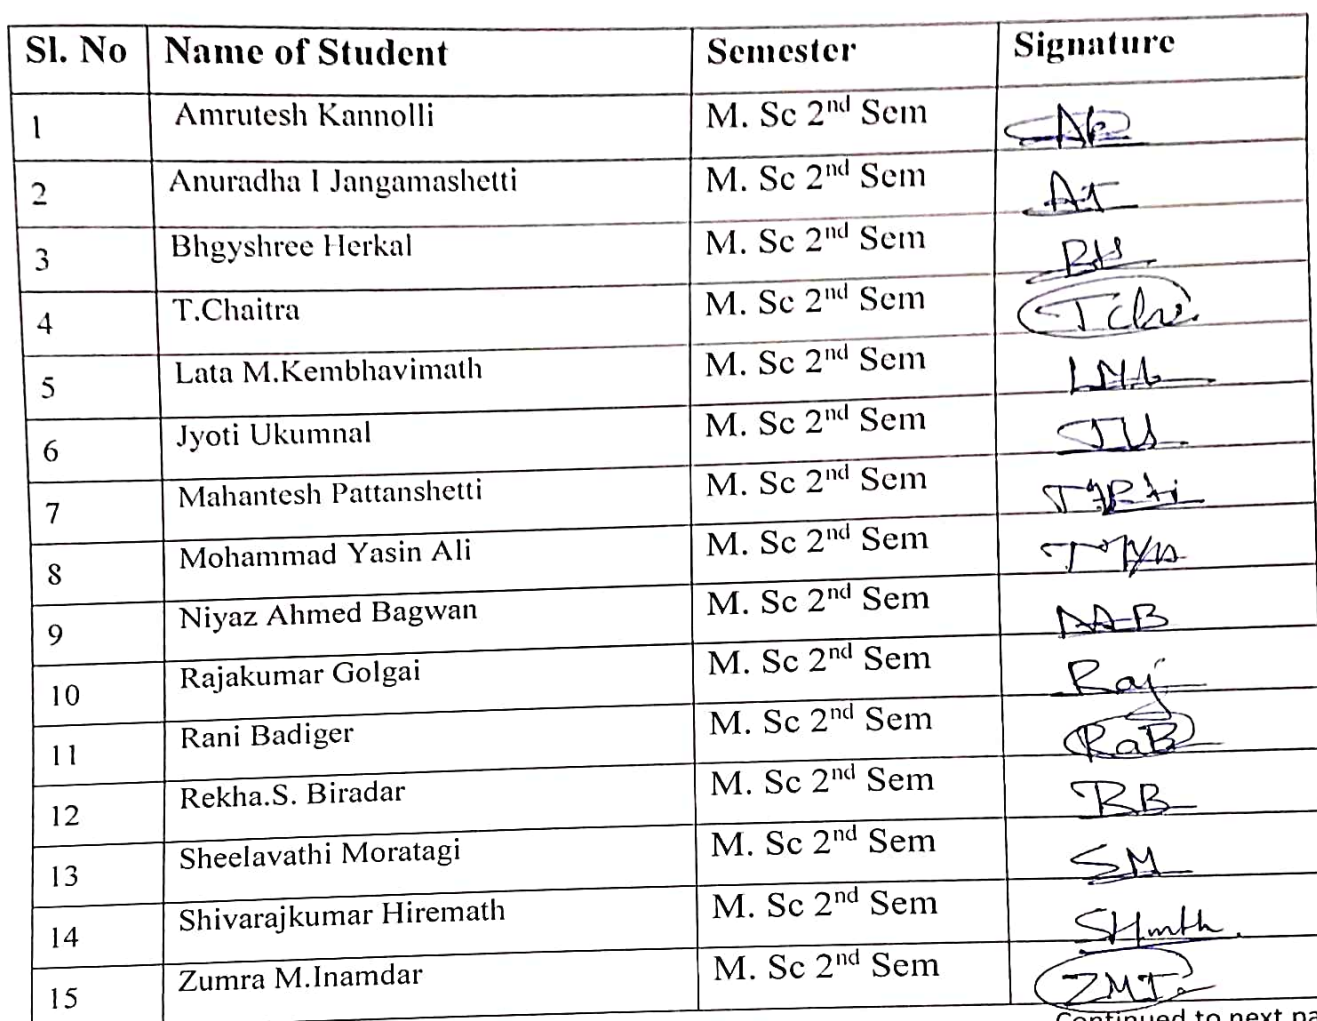 Sl. No Name of Student Semester Signature
1 Amrutesh Kannolli M. Sc 2nd Sem AK
2 Anuradha I Jangamashetti M. Sc 2nd Sem
3 Bhgyshree Herkal M. Sc 2nd Sem BH
4 T.Chaitra M. Sc 2nd Sem
5 Lata M.Kembhavimath M. Sc 2nd Sem
6 Jyoti Ukumnal M. Sc 2nd Sem JU
7 Mahantesh Pattanshetti M. Sc 2nd Sem
8 Mohammad Yasin Ali M. Sc 2nd Sem
9 Niyaz Ahmed Bagwan M. Sc 2nd Sem
10 Rajakumar Golgai M. Sc 2nd Sem Raj
11 Rani Badiger M. Sc 2nd Sem RaB
12 Rekha.S. Biradar M. Sc 2nd Sem
13 Sheelavathi Moratagi M. Sc 2nd Sem SM
14 Shivarajkumar Hiremath M. Sc 2nd Sem SHmth.
15 Zumra M.Inamdar M. Sc 2nd Sem ZMI.
Continued to next pa